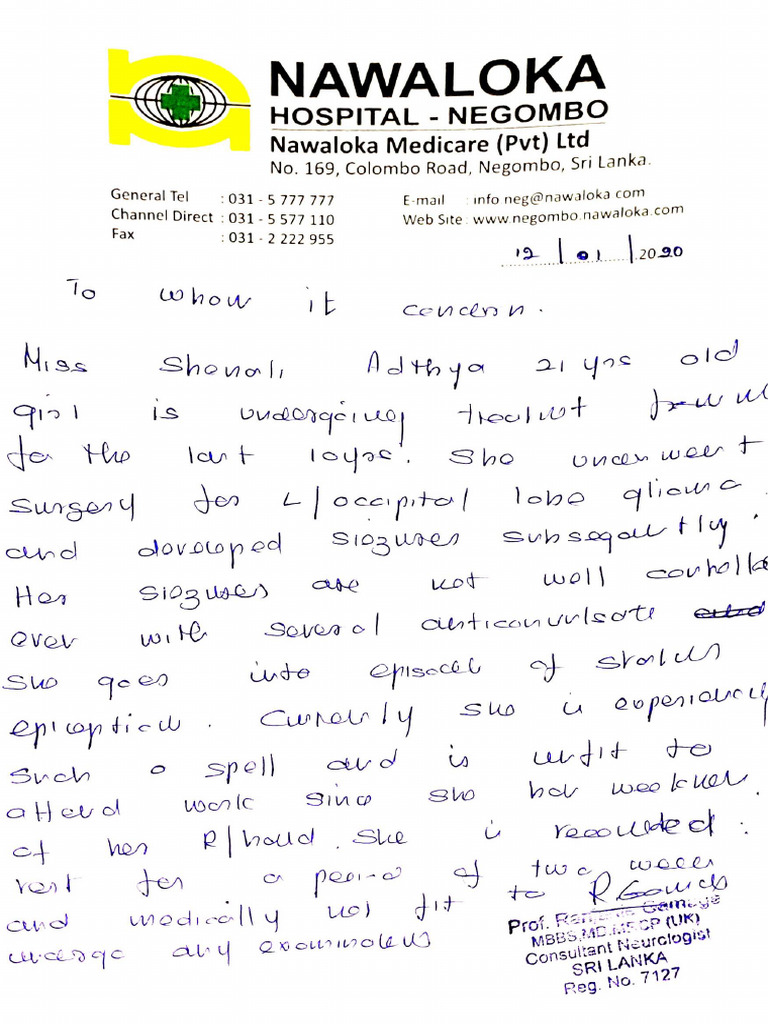 NAWALOKA
HOSPITAL - NEGOMBO
Nawaloka Medicare (Pvt) Ltd
No. 169, Colombo Road, Negombo, Sri Lanka.
General Tel : 031 - 5 777 777
Channel Direct : 031 - 5 577 110
Fax : 031 - 2 222 955
E-mail : info neg@nawaloka.com
Web Site : www.negombo.nawaloka.com
12 / 01 / 2020
To whom it concern.
Miss Shenali Adthya 21 yrs old
girl is undergoing treatmt from
for the last 10yrs. She underwent
surgery for L/occipital lobe glioma
and developed siezures subsequetly.
Her siezures are not well controlle
ever with several anticonvulsate
She goes into episodes of status
epileption. Currently she is experiencing
such a spell and is unfit to
attend work since she has weakness
of her R/hand. She is recomded
rest for a period of two weeks
and medically not fit to
undergo any examinations
Prof. Gamage
MBBS,MD,MRCP (UK)
Consultant Neurologist
SRI LANKA
Reg. No. 7127